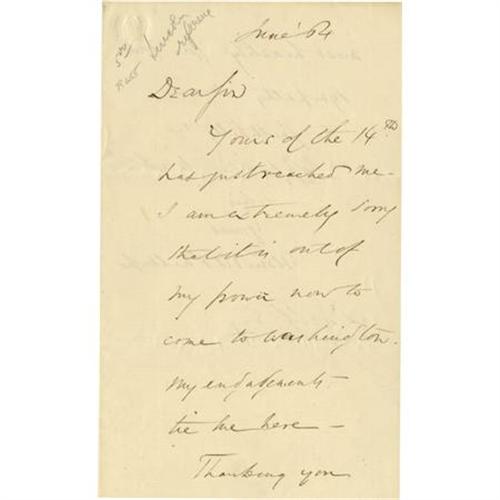 June '64
Lincoln
reference
Dear Sir
Yours of the 14th
has just reached me -
I am extremely sorry
that it is out of
my power now to
come to Washington.
My engagements
tie me here -
Thanking you